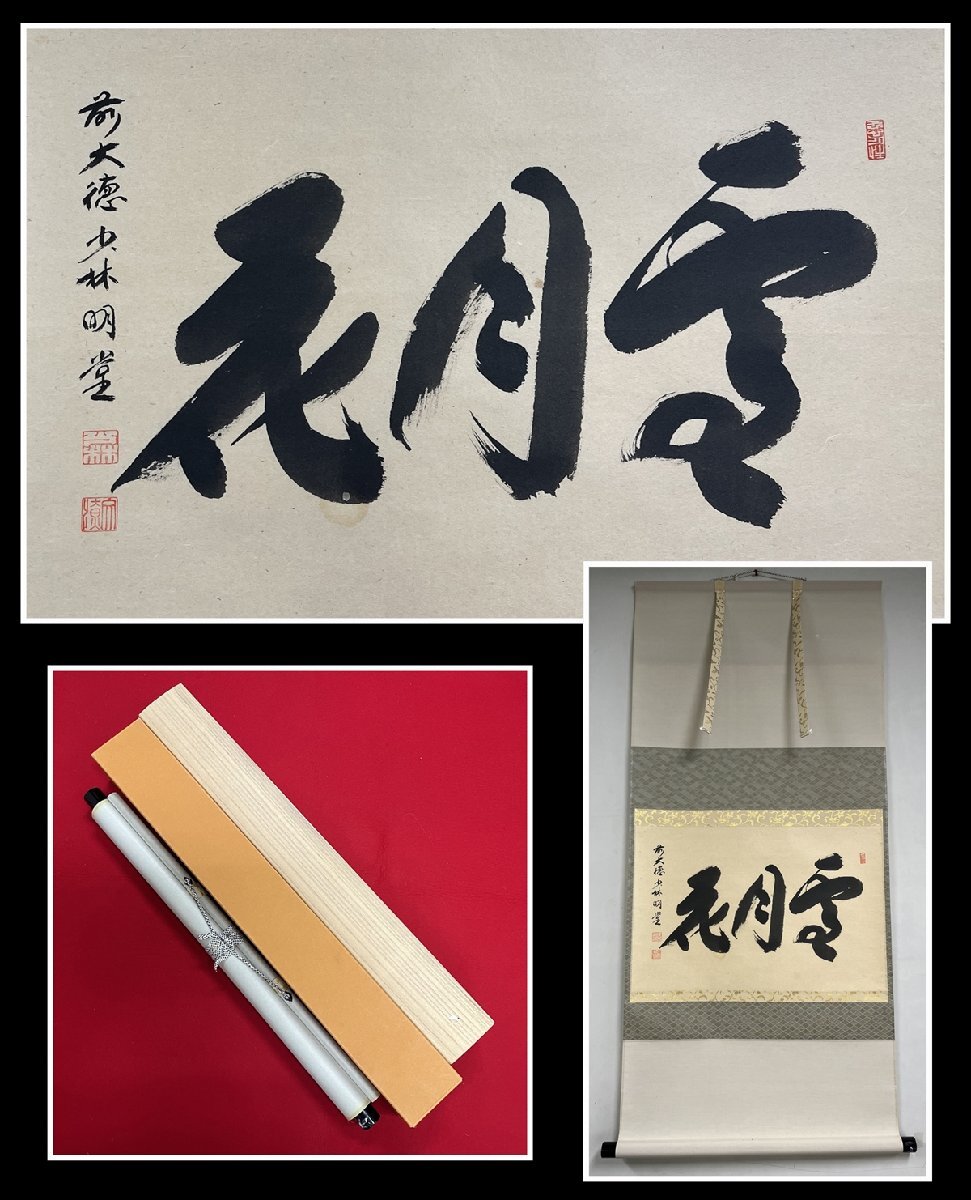 雪月花
前大徳少林明堂
雪月花
前大徳少林明堂